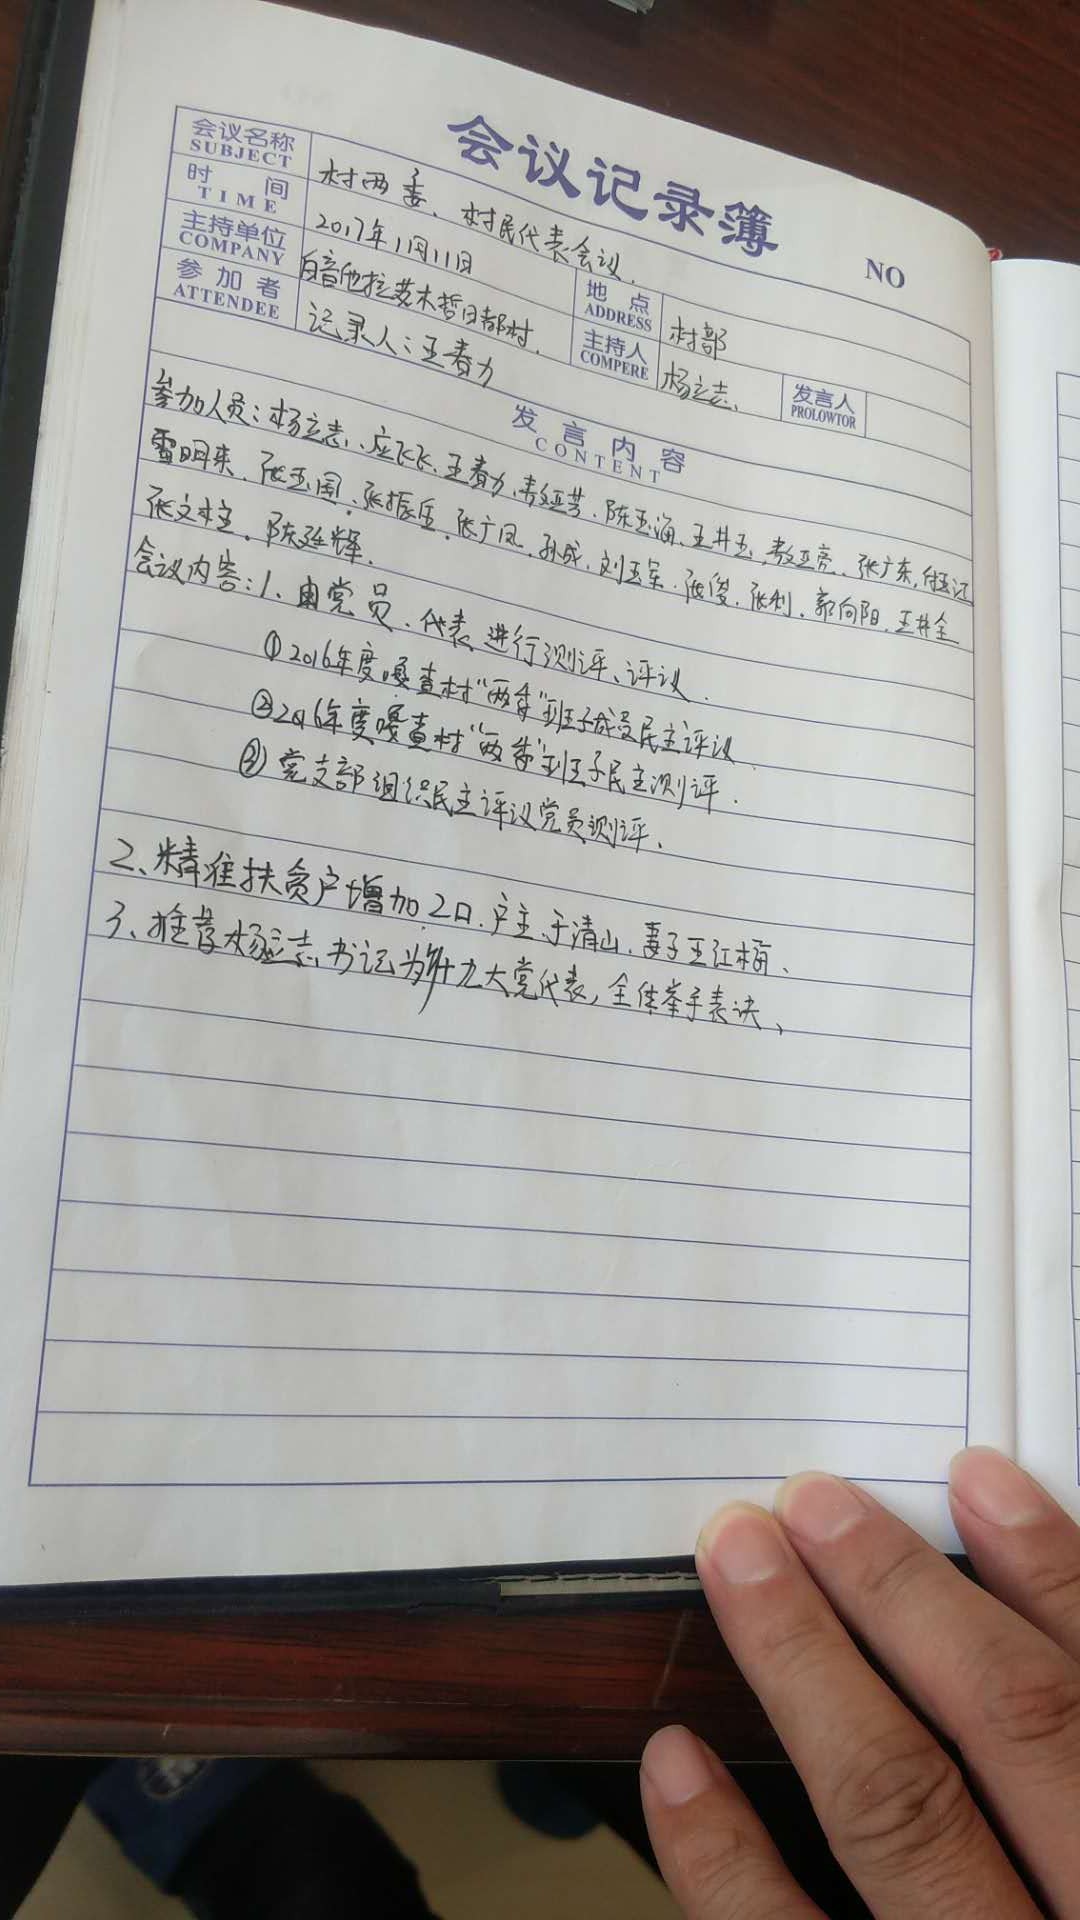 会议记录簿
NO
会议名称 村两委、村民代表会议.
SUBJECT
时间 2017年1月11日 地点 村部
TIME ADDRESS
主持单位 白音他拉苏木哲日都村. 主持人 杨立志、 发言人
COMPANY COMPERE PROLOWTOR
参加者 记录人:王春力
ATTENDEE
发言内容
CONTENT
参加人员:杨立志、应飞飞、王春力、敖亚芳、陈玉海、王井玉、敖亚亮、张广东,
雪明来、张玉国、张振臣、张广凤、孙成、刘玉军、张俊、张利、郭向阳、王井全
张文柱、陈延辉、
会议内容:1、由党员、代表进行测评、评议.
①2016年度嘎查村“两委”班子成员民主评议.
②2016年度嘎查村“两委”班子民主测评.
③党支部组织民主评议党员测评、
2、精准扶贫户增加2口.户主于清山、妻子王红梅、
3、推荐杨立志书记为十九大党代表,全体举手表决、